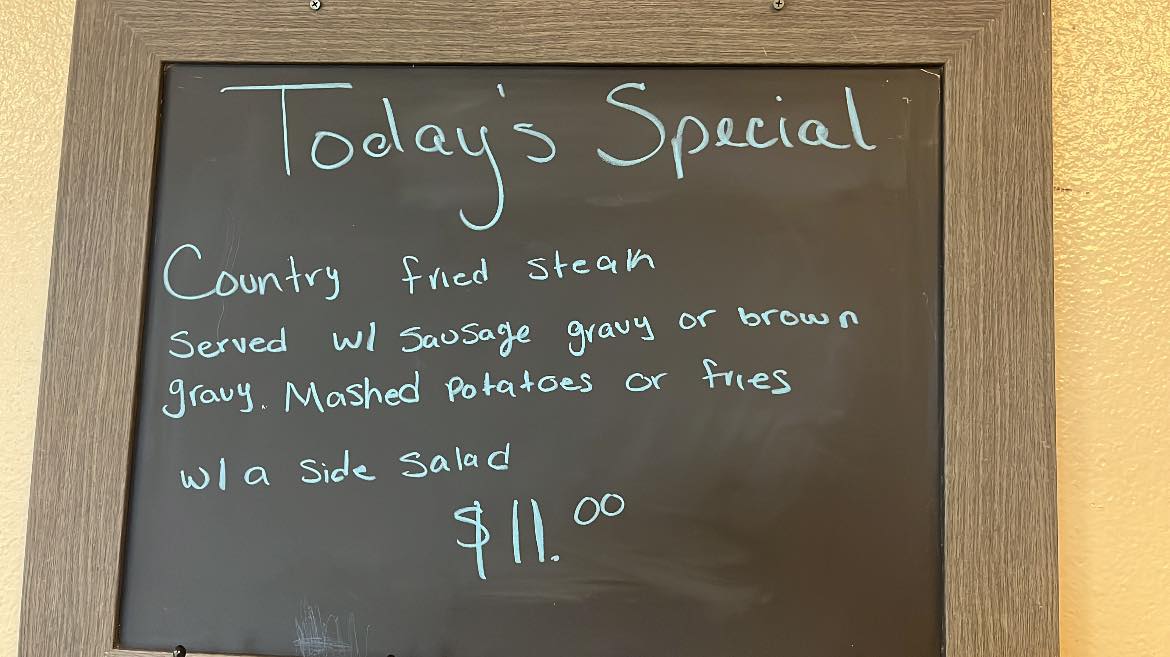 Today's Special
Country fried steak
Served w/ Sausage gravy or brown
gravy. Mashed Potatoes or fries
w/ a side salad
$11.00